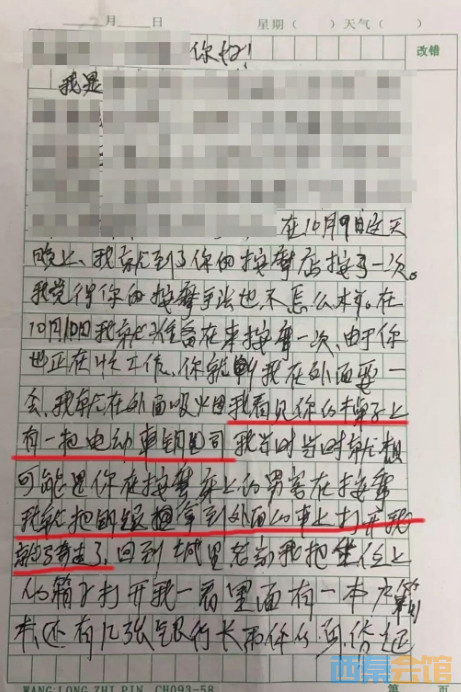 月 日 星期（ ）天气（ ）
你好! 改错
我是
在10月9日这天
晚上、我就到了你的按摩店按了一次。
我觉得你的按摩手法也不怎么样。在
10月10日我就准备在来按摩一次、由于你
也正在忙工作、你就叫我在外面耍一
会、我就在外面吸火因我看见你的桌子上
有一把电动车钥匙司我当时当时就想
可能是你在按摩床上的男客在按摩
我就把钥匙拿到外面的车上打开我
就骑走了回到城里左右我把坐位上
的箱子打开我一看里面有一本户
本,还有几张银行卡和你的身份证
WANG LONG ZHI PIN CH093-58 第 页
西秦会馆